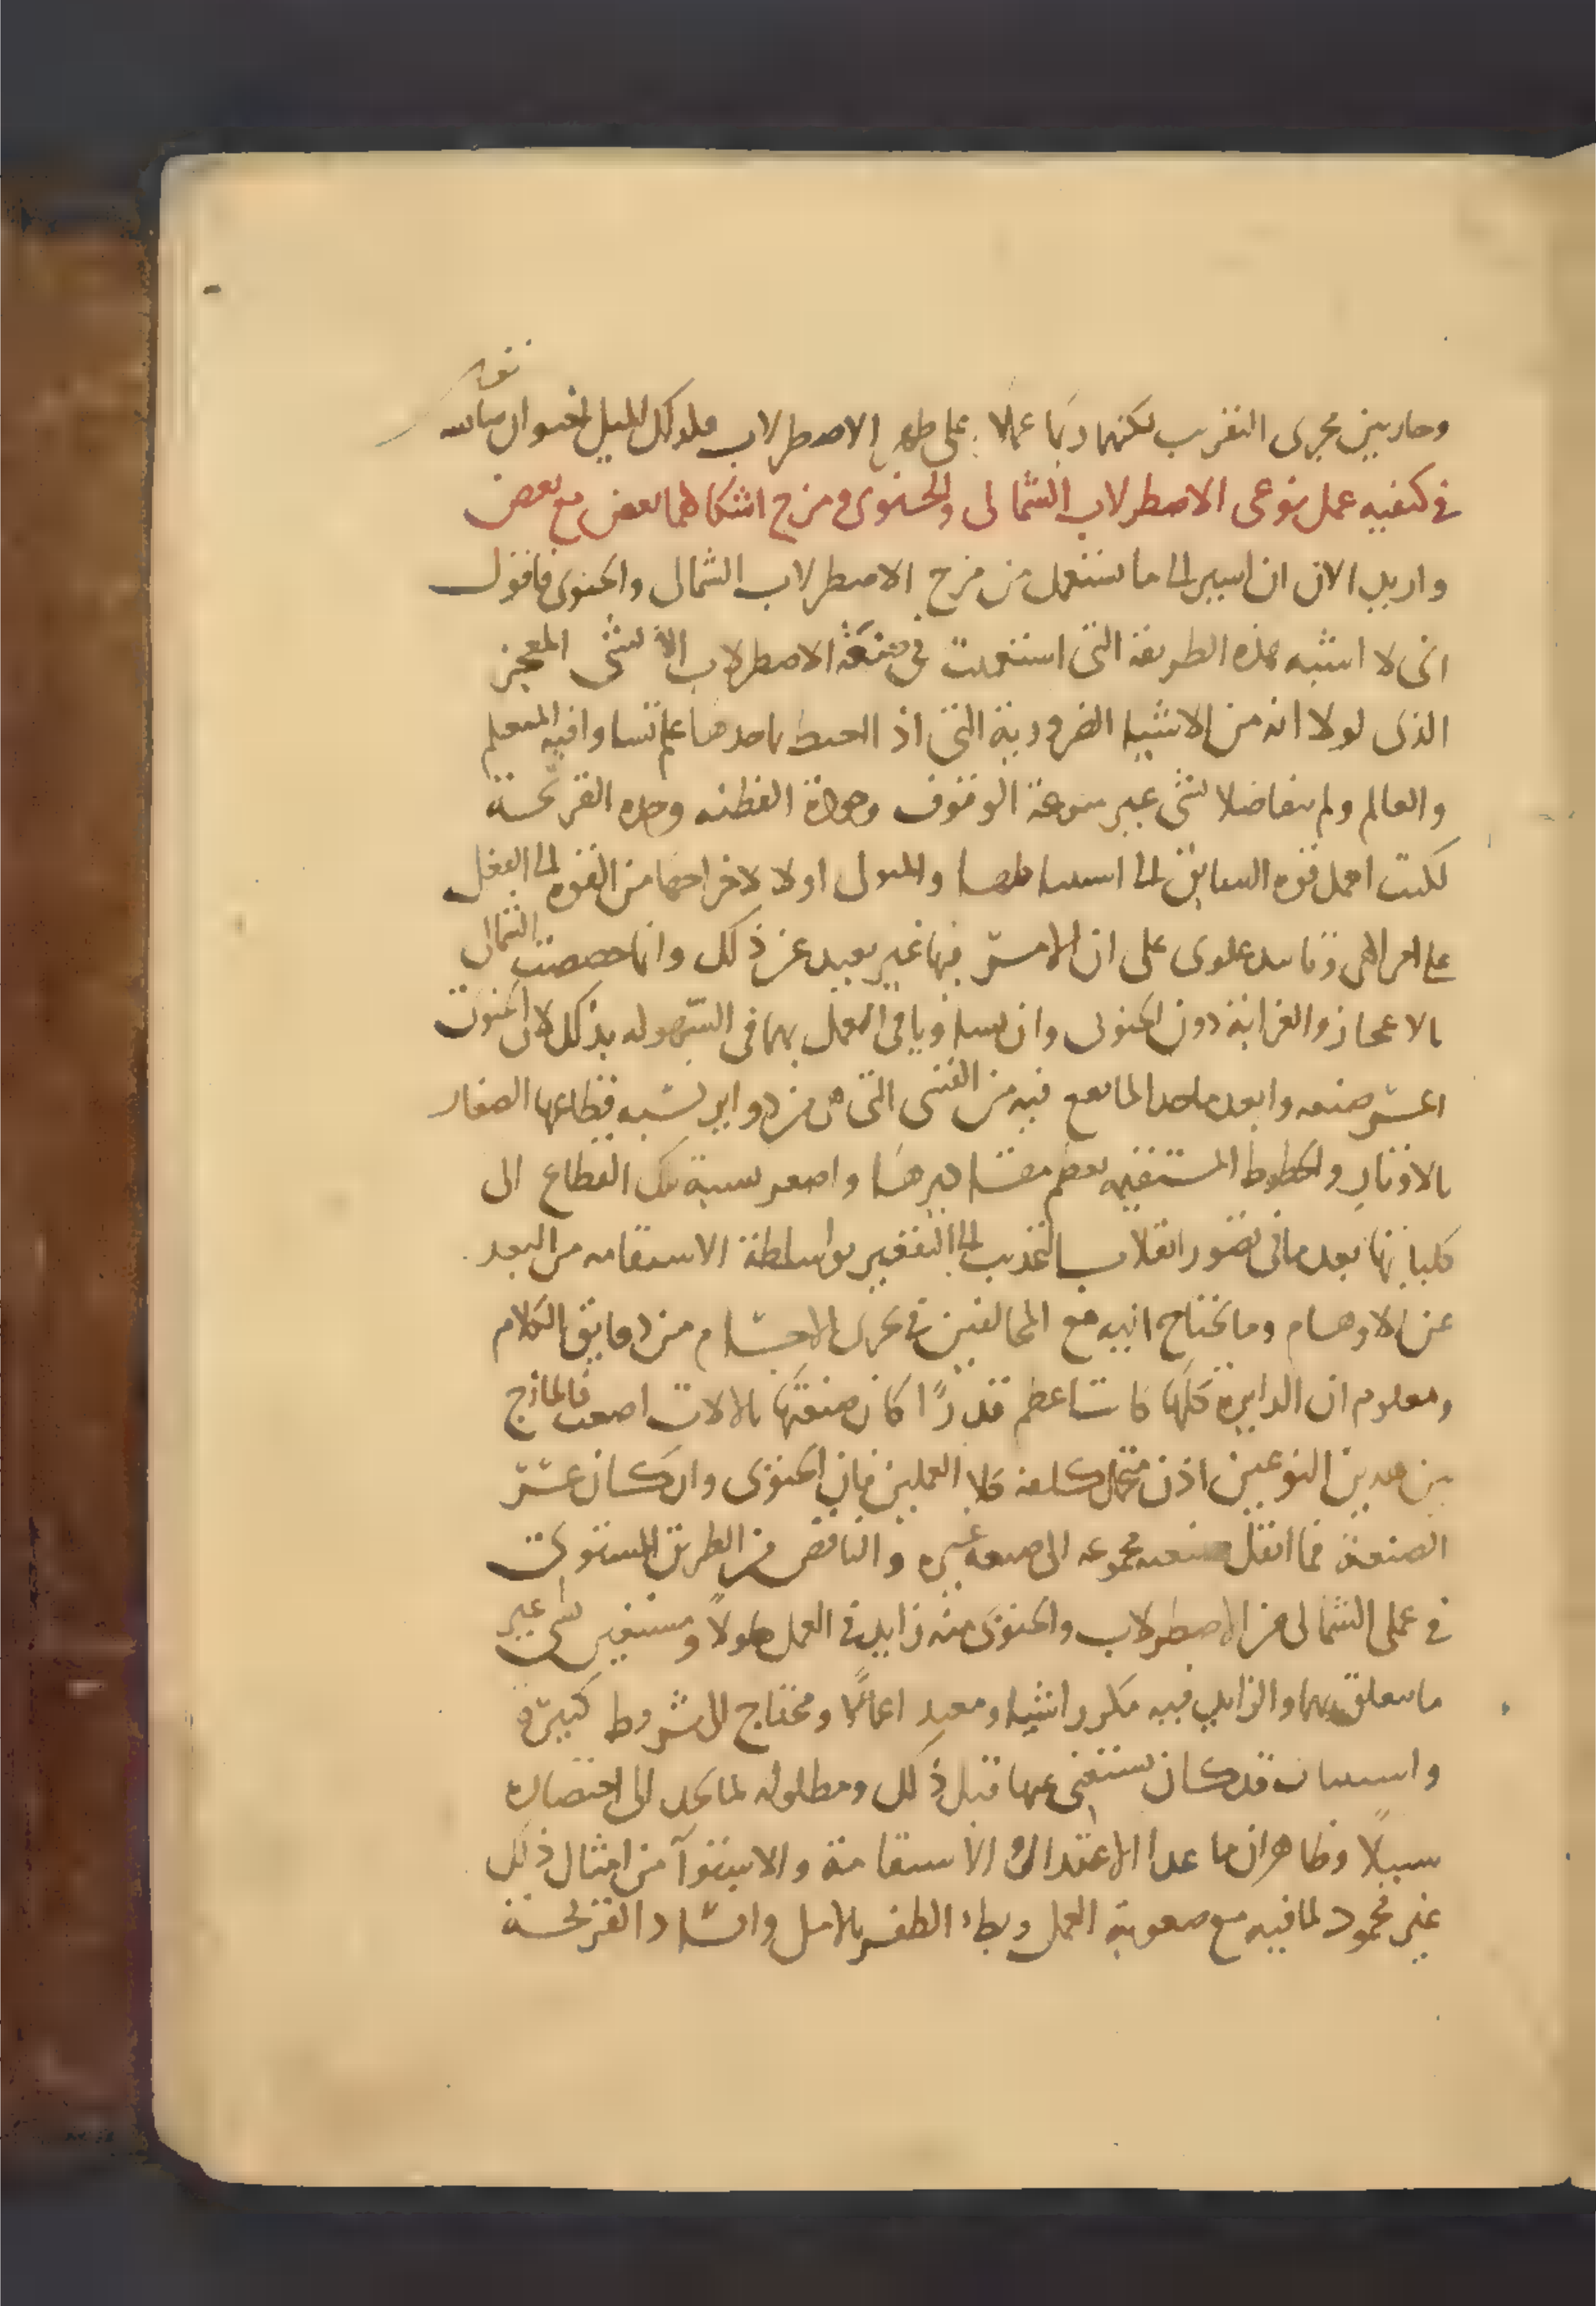 وجاريين مجرى التقريب لكنهما ربما عملا على ظهر الاصطرلاب فلذلك الميل
في كيفيه عمل نوعى الاصطرلاب الشمالى والجنوبى ومزج اشكالهما بعض مع بعض
واريد الان ان اسير الى ما يستعمل من مزج الاصطرلاب الشمالى والجنوبى فاقول
انى لا اشبه هذه الطريقة التى استعملت في صنعة الاصطرلاب الا بشئ المعجز
الذى لولا انه من الاشيا الضرورية التى اذا احيط باحدها علم تساوا فيه المتعلم
والعالم ولم يتفاضلا بشى غير سرعة الوقوف وجودة الفطنه وحده القريحسة
لكنت احمل قوه السابق الى استنباطها والمتولى اولا لاخراجها من القوه الى الفعل
على امر الهى وتاييد علوى على ان الامر فيها غير بعيد عن ذلك وانما خصصت الشمالى
بالاعجاز والغرابة دون الجنوبى وان تساويا فى العمل بهما فى السهوله بذلك لان الجنوبى
اعسر صنعه وابعد ماخذا لما يقع فيه من القسى التى من دواير تشبه قطاعها الصغار
بالاوتار والخطوط المستقيمه لعظم مقاديرها واصغر نسبة تلك القطاع الى
كلياتها بعد ما فى تصور انقلاب التحديب الى التقعير بواسطة الاستقامه من البعد
عن الاوهام وما يحتاج اليه مع المخالفين في تجزى الاجسام من دقايق الكلام
ومعلوم ان الدايرة كلما كانت اعظم قدرًا كان صنعتها بالالات اصعب فالمازج
بين هذين النوعين اذن متحمل كلفة كلا العملين فان الجنوبى وان كان عسر
الصنعة فما انتقل صنعه مجموعه الى صنعه غيره والناقص من الطريق المستوى
في عملى الشمالى من الاصطرلاب والجنوبى منه زايد في العمل طولًا ومستغير شى غير
ما يتعلق بهما والزايد فيه مكرر اشيا ومعيد اعمالًا ومحتاج الى شروط كثيرة
واسباب قد كان يستغنى عنها قبل ذلك ومطلوله لما يجد الى اختصاره
سبيلًا وظاهر ان ما عدا الاعتدال والاستقامة والاستوآ من امثال ذلك
غير محمود لما فيه مع صعوبة العمل وبطء الظفر بالامل وافساد القريحسة